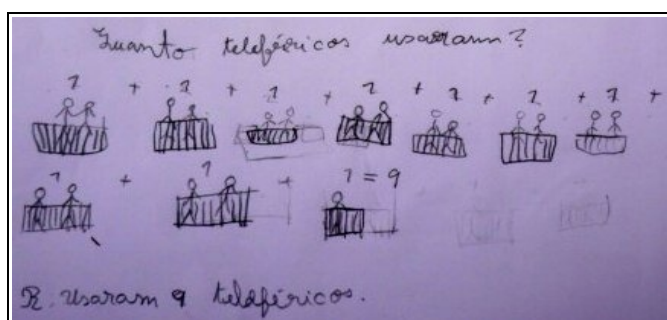 Quanto teleféricos usaram?
1 + 1 + 1 + 1 + 1 + 1 + 1 +
1 + 1 + 1 = 9
R. Usaram 9 teleféricos.